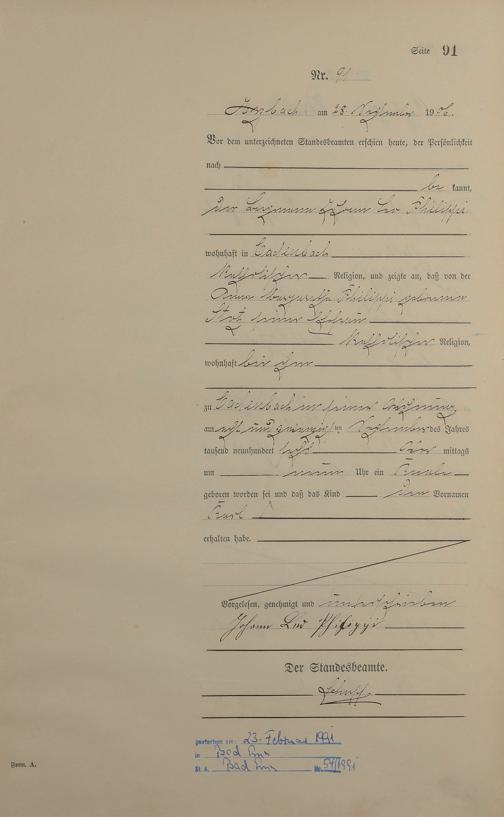 Seite 91
Nr. 91
am 28. September 1906.
Vor dem unterzeichneten Standesbeamten erschien heute, der Persönlichkeit
nach
be kannt,
der Bergmann Johann Leo Philippi
wohnhaft in
Katholischer Religion, und zeigte an, daß von der
Anna Margaretha Philippi geborenen
seiner Ehefrau
Katholischer Religion,
wohnhaft bei ihm
zu in seiner Wohnung
am acht und zwanzigsten September des Jahres
tausend neunhundert sechs Vor mittags
um neun Uhr ein Knabe
geboren worden sei und daß das Kind den Vornamen
Karl
erhalten habe.
Vorgelesen, genehmigt und unterschrieben
Johann Leo Philippi
Der Standesbeamte.
gestorben am: 23. Februar 1991
in Bad
St. A. Bad Nr. 1991
Form. A.